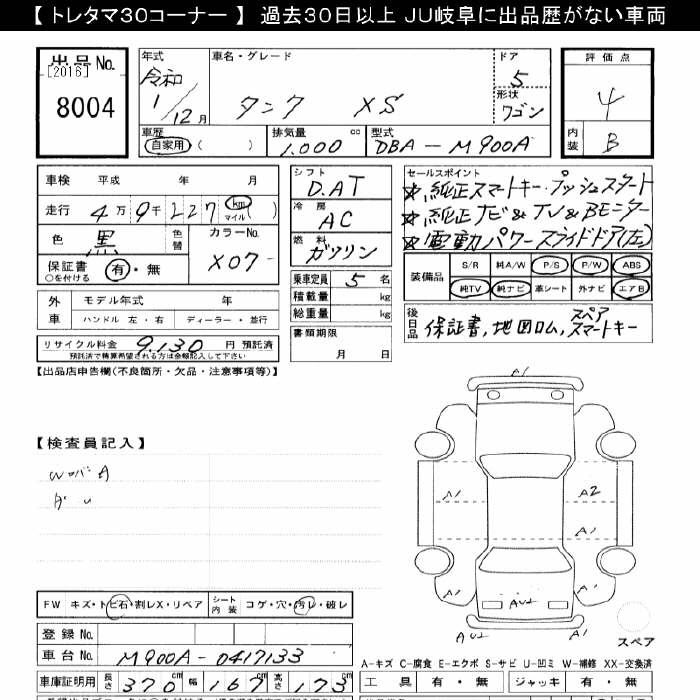 【 トレタマ30コーナー 】 過去30日以上 JU岐阜に出品歴がない車両
出品 No.
[2016]
8004
年式
令和
1/12月
車名・グレード
タンク XS
ドア
5
形状
ワゴン
評価点
4
内装
B
車歴
自家用 ( )
排気量
1.000 cc
型式
DBA-M900A
車検 平成 年 月
走行 4万9千227 km マイル ( )
色 黒
色替
カラーNo.
X07
保証書 有・無
○を付ける
外車
モデル年式 年
ハンドル 左・右 ディーラー・並行
リサイクル料金 9,130 円 預託済
預託済で精算希望される方は金額記入して下さい
シフト
D.AT
冷房
AC
燃料
ガソリン
乗車定員 5 名
積載量 kg
総重量 kg
書類期限
月 日
セールスポイント
★純正スマートキー・プッシュスタート
★純正ナビ&TV&Bモニター
★電動パワースライドドア(左)
装備品
S/R 純A/W P/S P/W ABS
純TV 純ナビ 革シート 外ナビ エアB
後日品
保証書,地図ロム,スペアスマートキー
【出品店申告欄(不良箇所・欠品・注意事項等)】
【検査員記入】
WロバA
A1
A2
A1
A1
AU2
AU2
A1
スペア
FW キズ・トビ石・割レX・リペア
シート内装 コゲ・穴・汚レ・破レ
登録 No.
車台 No. M900A-0417133
A-キズ C-腐食 E-エクボ S-サビ U-凹ミ W-補修 XX-交換済
車庫証明用 長さ 370 cm 幅 167 cm 高さ 173 cm
工具 有・無 ジャッキ 有・無